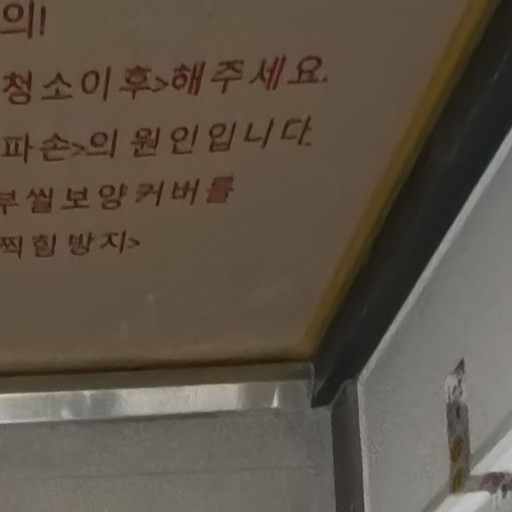 의!
청소 이후>해주세요.
파손>의 원인입니다.
부씰보양커버를
찍힘방지>